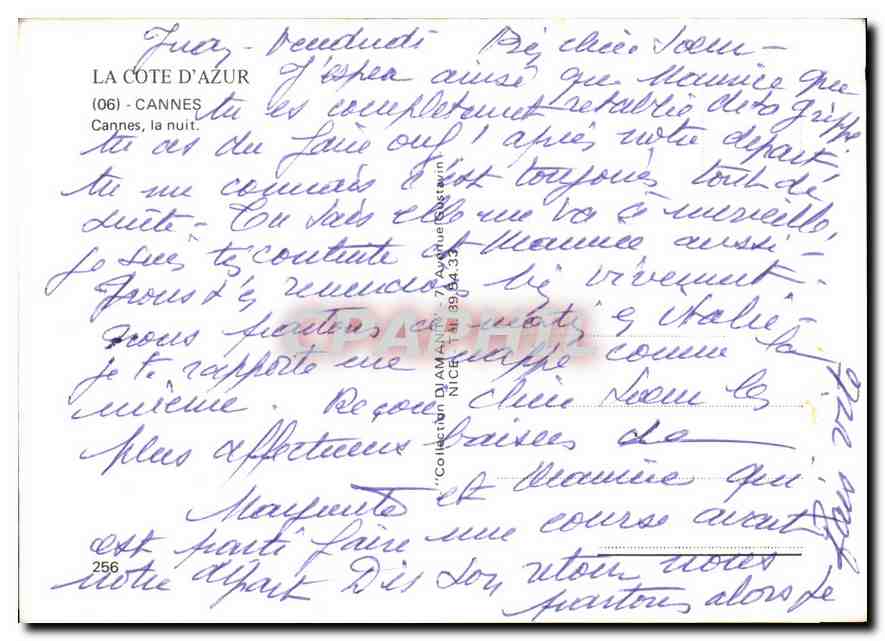 Juan - Vendredi Bien chère Soeur -
LA COTE D'AZUR
(06) - CANNES
Cannes, la nuit.
J'espère ainsi que Maurice que
tu es complètement rétablie de ta grippe
tu as du faire ouf ! après notre départ,
tu me connais c'est toujours tout de
suite -
je suis très contente et Maurice aussi -
Nous t'en remercions bien vivement -
nous partons ce matin en Italie -
je te rapporte une nappe comme la
mienne. Reçois chère Soeur les
plus affectueux baisers de
Marguerite et Maurice qui
est parti faire une course avant
notre départ Dès son retour nous
partons alors je
fais vite
"Collection DIAMANTS" - 7, Avenue Gustavin
NICE - Tél. 89.54.33
CPAPHIL
256